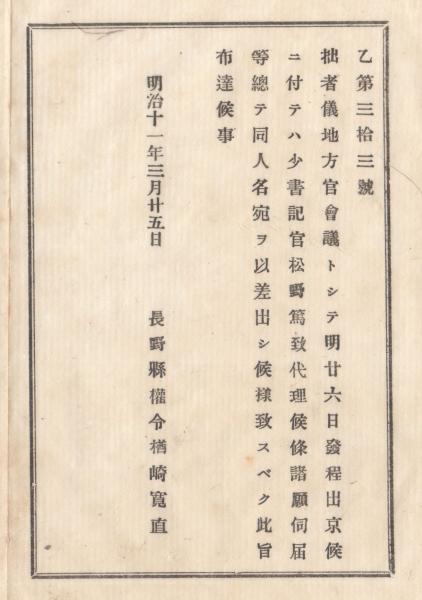 乙第三拾三號
拙者儀地方官會議トシテ明廿六日發程出京候
ニ付テハ少書記官松野篤致代理候條諸願伺届
等總テ同人名宛ヲ以差出シ候樣致スベク此旨
布達候事
明治十一年三月廿五日　長野縣權令楢崎寬直